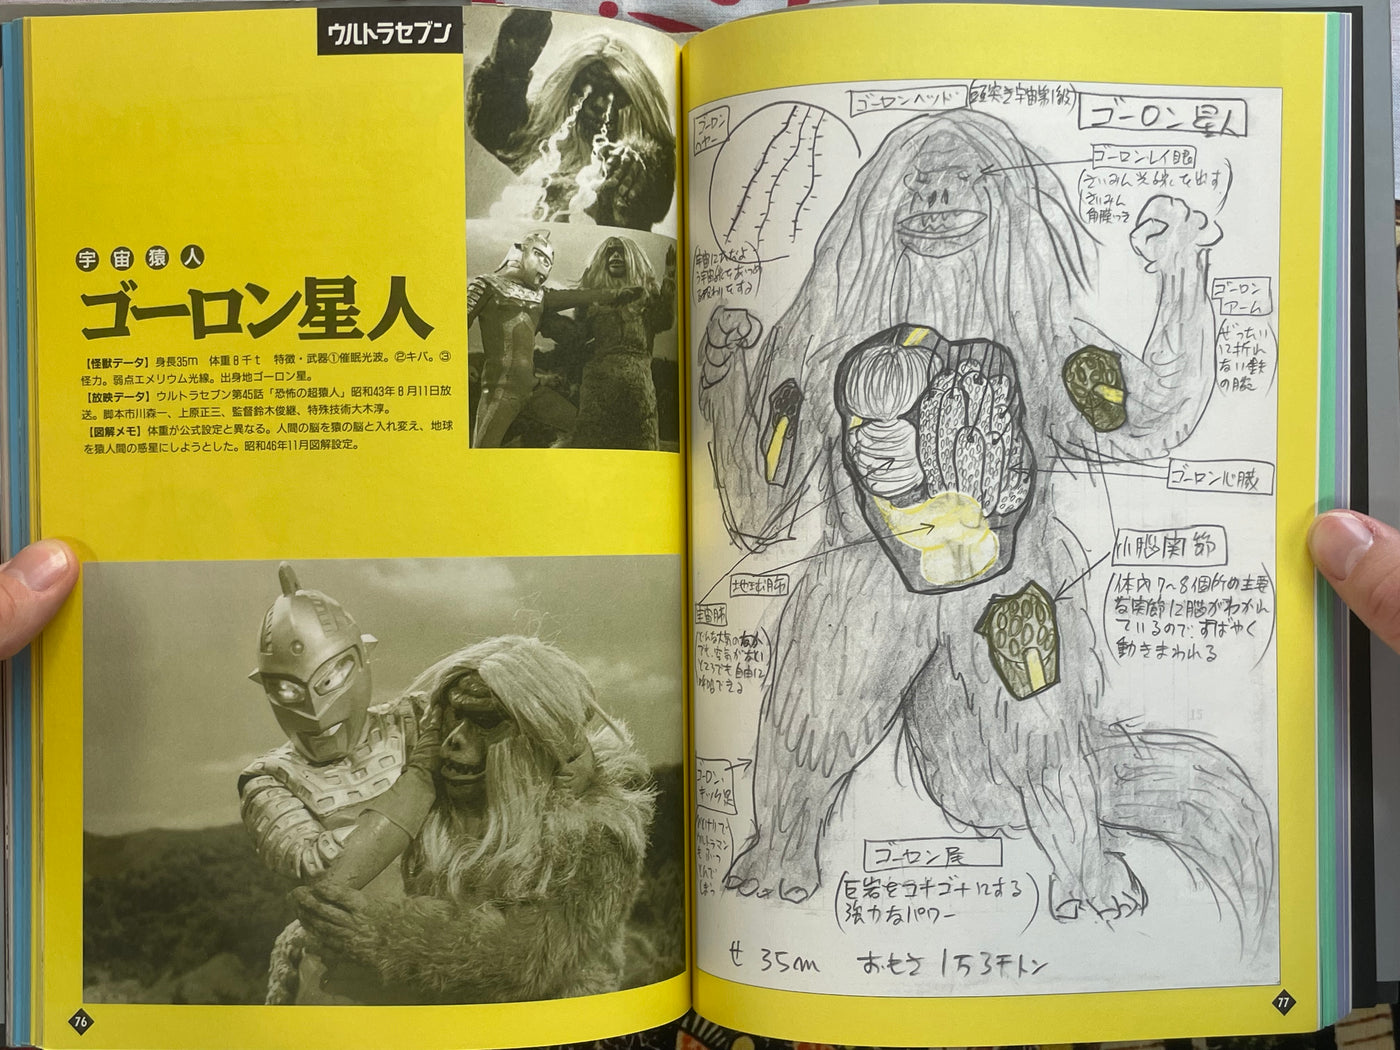 ウルトラセブン
宇宙猿人
ゴーロン星人
【怪獣データ】身長35m　体重8千t　特徴・武器①催眠光波。②キバ。③
怪力。弱点エメリウム光線。出身地ゴーロン星。
【放映データ】ウルトラセブン第45話「恐怖の超猿人」昭和43年8月11日放
送。脚本市川森一、上原正三、監督鈴木俊継、特殊技術大木淳。
【図解メモ】体重が公式設定と異なる。人間の脳を猿の脳と入れ変え、地球
を猿人間の惑星にしようとした。昭和46年11月図解設定。
76
ゴーロン星人
ゴーロンヘッド
(頭突き宇宙第1級)
ゴーロン
ヘヤー
ゴーロンレイ眼
(さいみん光線を出す
さいみん
角膜つき
ゴーロン
アーム
ぜったい
に折れ
ない鉄
の腕
ゴーロン心臓
小脳関節
体内7〜8個所の主要
な関節に脳がわかれ
ているので、すばやく
動きまわれる
地球肺
宇宙肺
ゴーロン
キック足
ゴーロン尾
巨岩をコナゴナにする
強力なパワー
せ 35m　おもさ 1万3千トン
77